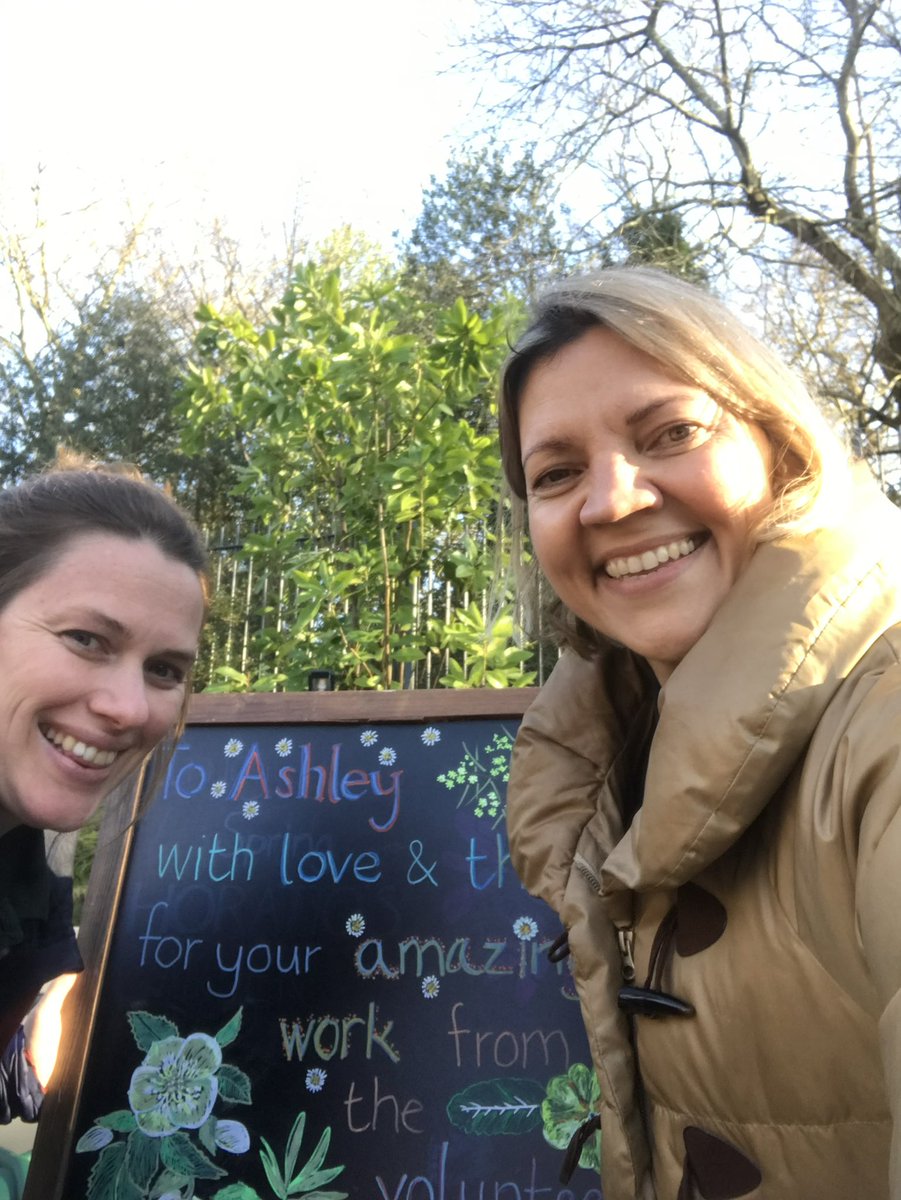 To Ashley
with love & th
for your amazing
work from
the
volunte